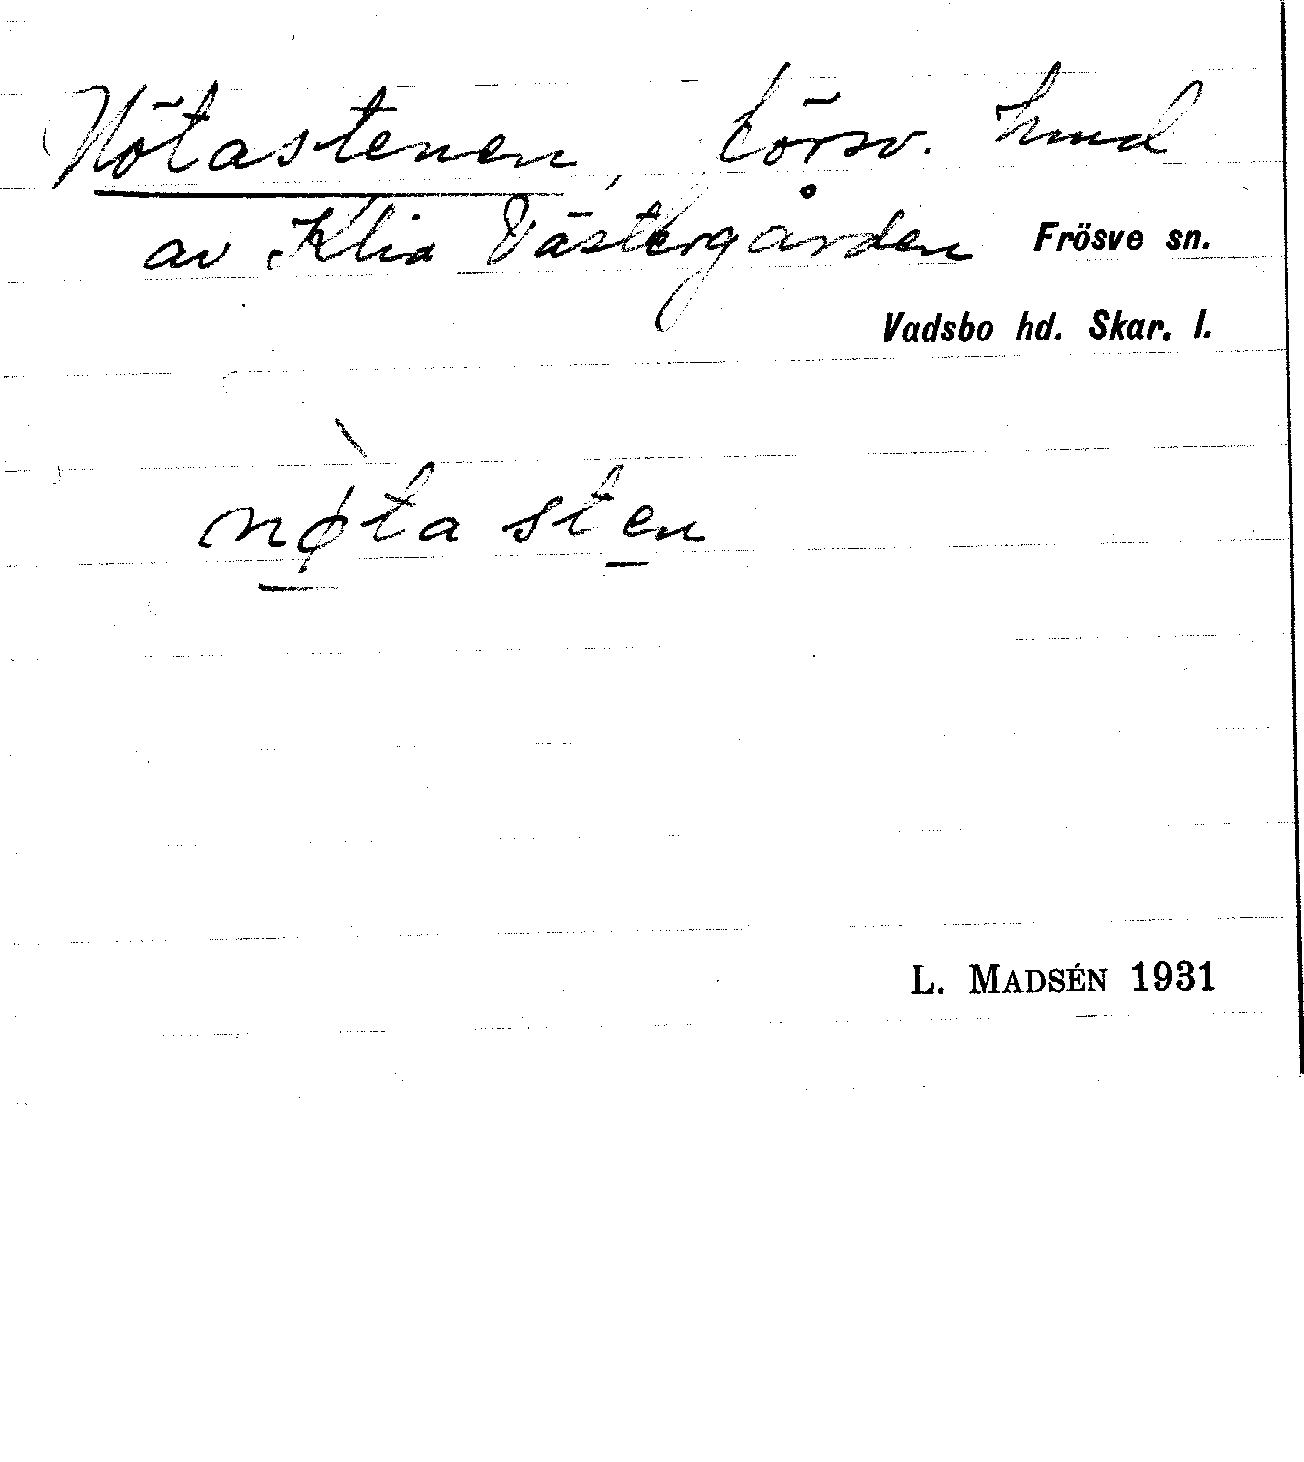 Nötastenen, försv. hmd
av Klia Västergården Frösve sn.
Vadsbo hd. Skar. l.
nøta sten
L. MADSÉN 1931